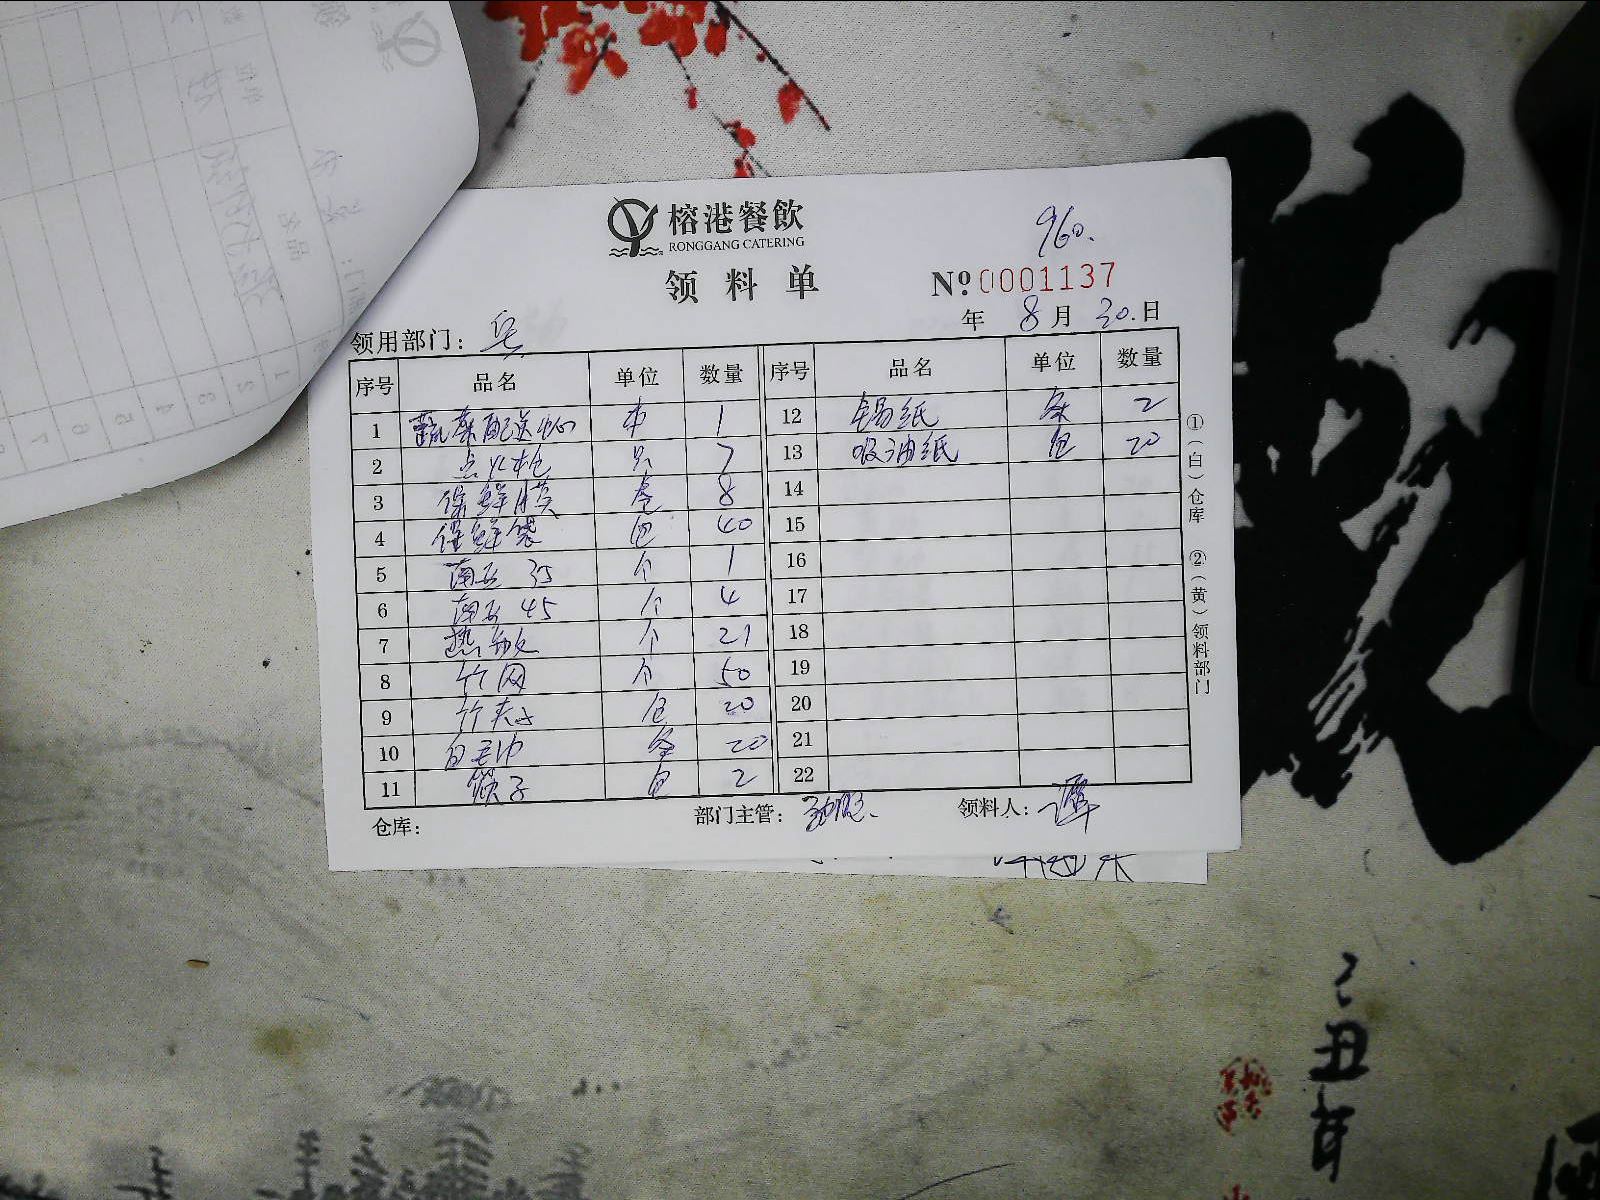 榕港餐飲
RONGGANG CATERING
960.
领料单
№ 0001137
年 8月 30.日
领用部门：
序号 品名 单位 数量 序号 品名 单位 数量
1 蔬菜配送中心 本 1 12 锡纸 条 2
2 点火枪 只 7 13 吸油纸 包 20
3 保鲜膜 卷 8 14
4 保鲜袋 包 40 15
5 南五 35 个 1 16
6 南五 45 个 4 17
7 热敏 个 21 18
8 竹网 个 50 19
9 竹夹子 包 20 20
10 白毛巾 条 20 21
11 筷子 包 2 22
仓库： 部门主管： 领料人：
①（白）仓库 ②（黄）领料部门
己丑年